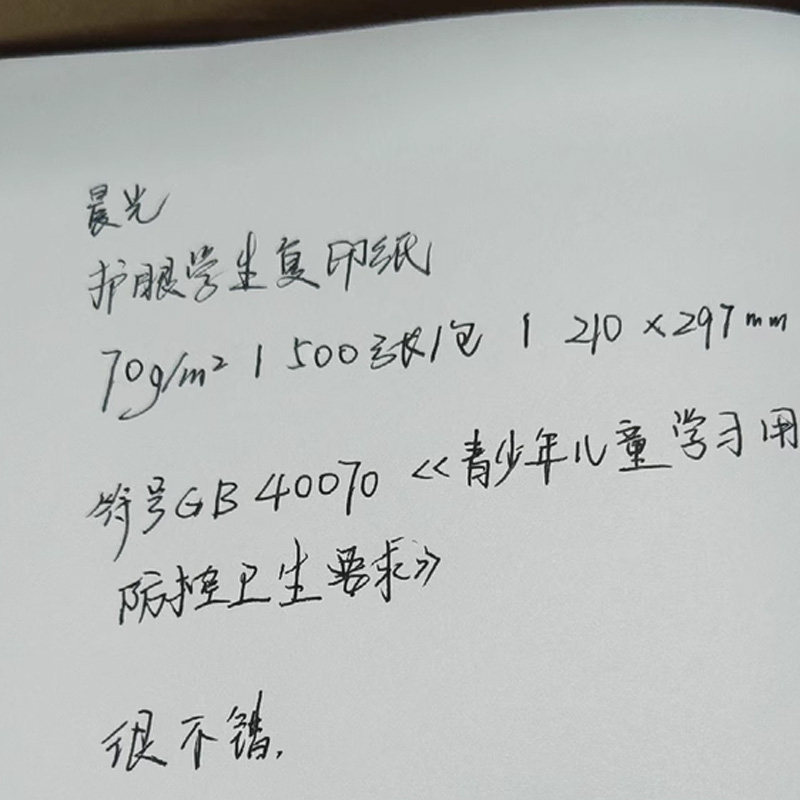 晨光
护眼学生复印纸
70g/m² | 500张/包 | 210×297mm
符号GB 40070 《青少年儿童学习用
防控卫生要求》
很不错.